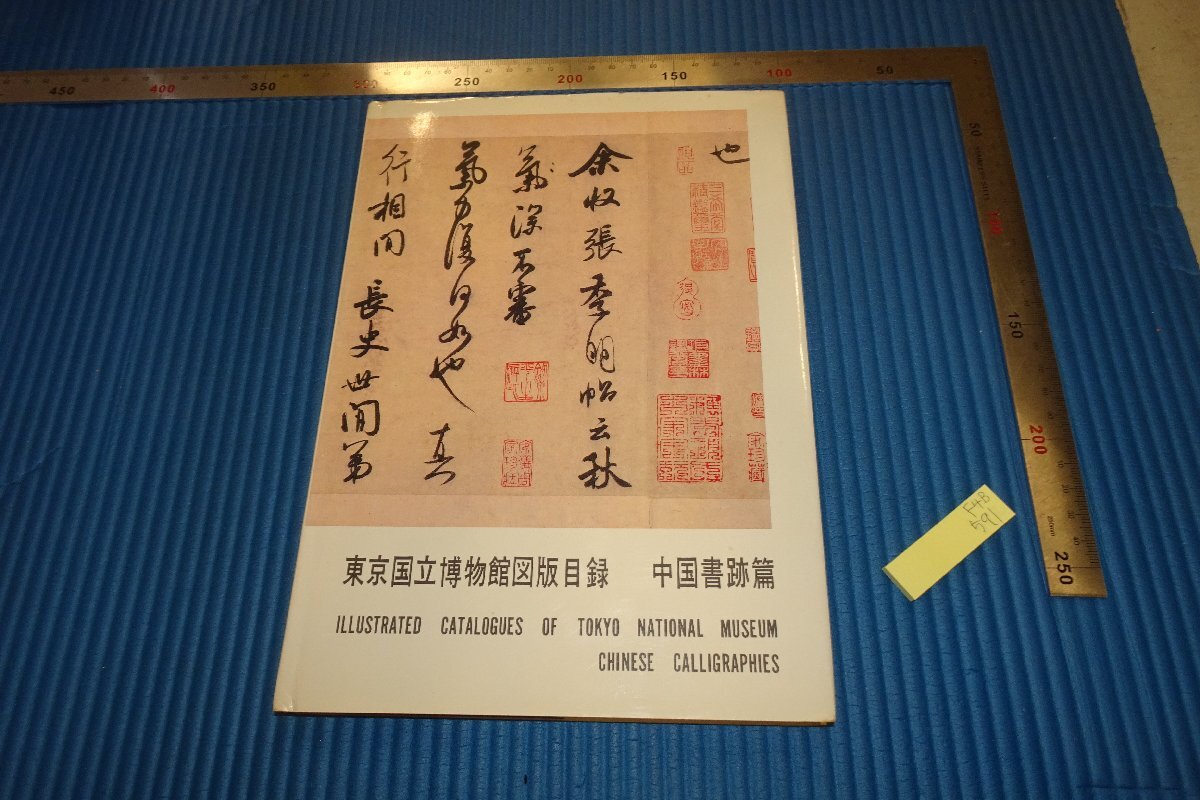 也
余收張季明帖云秋
氣深不審
氣力復何如也真
行相間長史世間第
東京国立博物館図版目録 中国書跡篇
ILLUSTRATED CATALOGUES OF TOKYO NATIONAL MUSEUM
CHINESE CALLIGRAPHIES
F4B
591
450 400 350 300 250 200 150 100 50
50
100
150
200
250